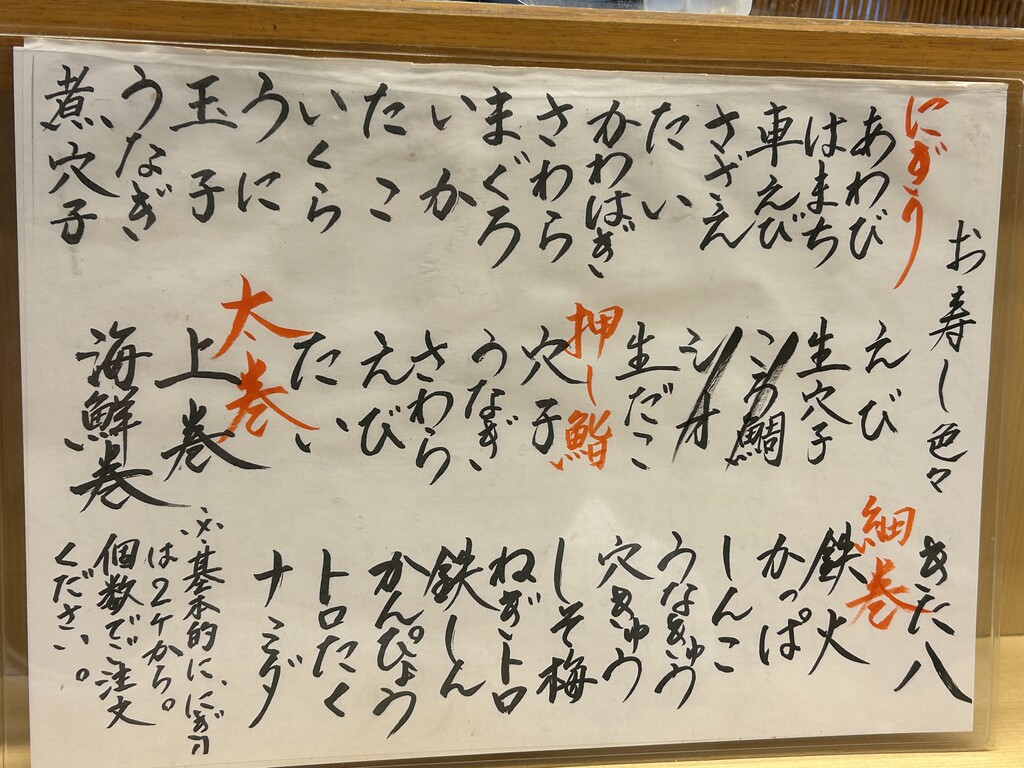 お寿し色々
きた八
にぎり
あわび
はまち
車えび
さざえ
たい
かわはぎ
さわら
まぐろ
いか
たこ
いくら
うに
玉子
うなぎ
煮穴子
えび
生穴子
鯛
生だこ
押し鮨
穴子
うなぎ
さわら
えび
たい
太巻
上巻
海鮮巻
細巻
鉄火
かっぱ
しんこ
うなきゅう
穴きゅう
しそ梅
ねぎトロ
鉄しん
かんぴょう
トロたく
ナミダ
※基本的に、にぎり
は2ケから。
個数でご注文
ください。